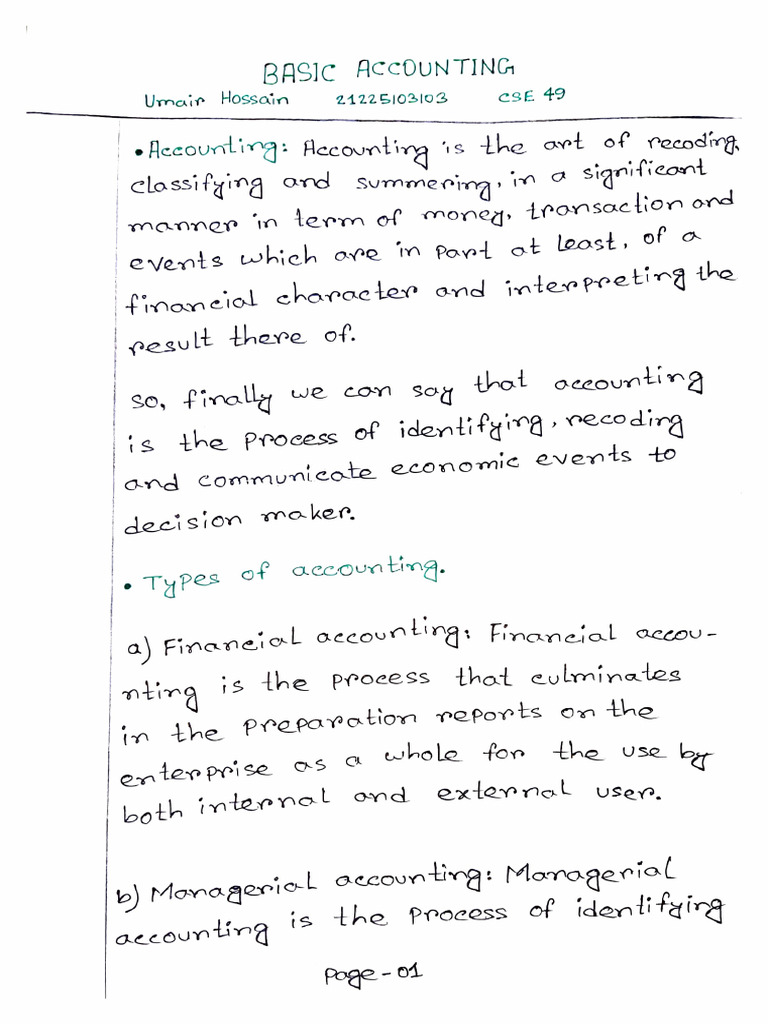 BASIC ACCOUNTING
Umair Hossain 21225103103 CSE 49
• Accounting: Accounting is the art of recoding,
classifying and summering, in a significant
manner in term of money, transaction and
events which are in part at least, of a
financial character and interpreting the
result there of.
so, finally we can say that accounting
is the process of identifying, recoding
and communicate economic events to
decision maker.
• Types of accounting.
a) Financial accounting: Financial accou-
nting is the process that culminates
in the preparation reports on the
enterprise as a whole for the use by
both internal and external user.
b) Managerial accounting: Managerial
accounting is the process of identifying
page-01